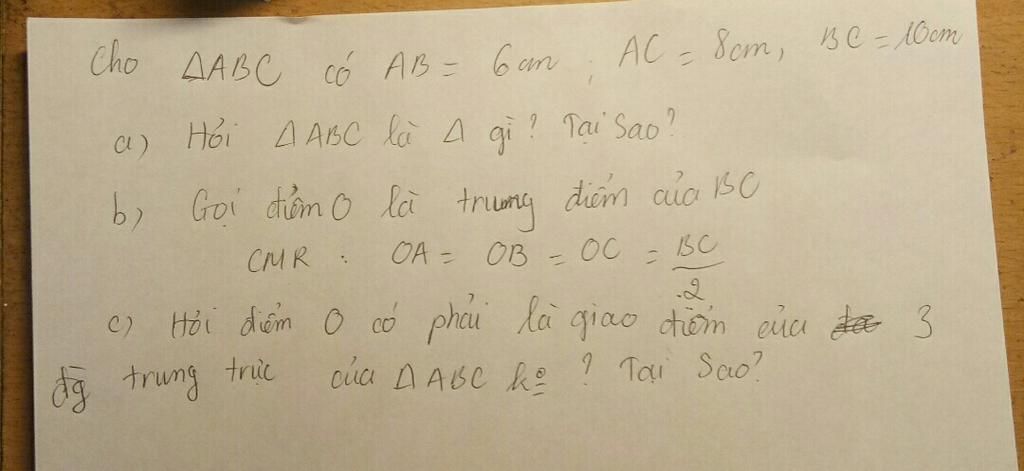 Cho ΔABC có AB = 6cm ; AC = 8cm, BC = 10cm
a) Hỏi ΔABC là Δ gì? Tại Sao?
b) Gọi điểm O là trung điểm của BC
CMR : OA = OB = OC = BC/2
c) Hỏi điểm O có phải là giao điểm của 3
đg trung trực của ΔABC ko ? Tại Sao?